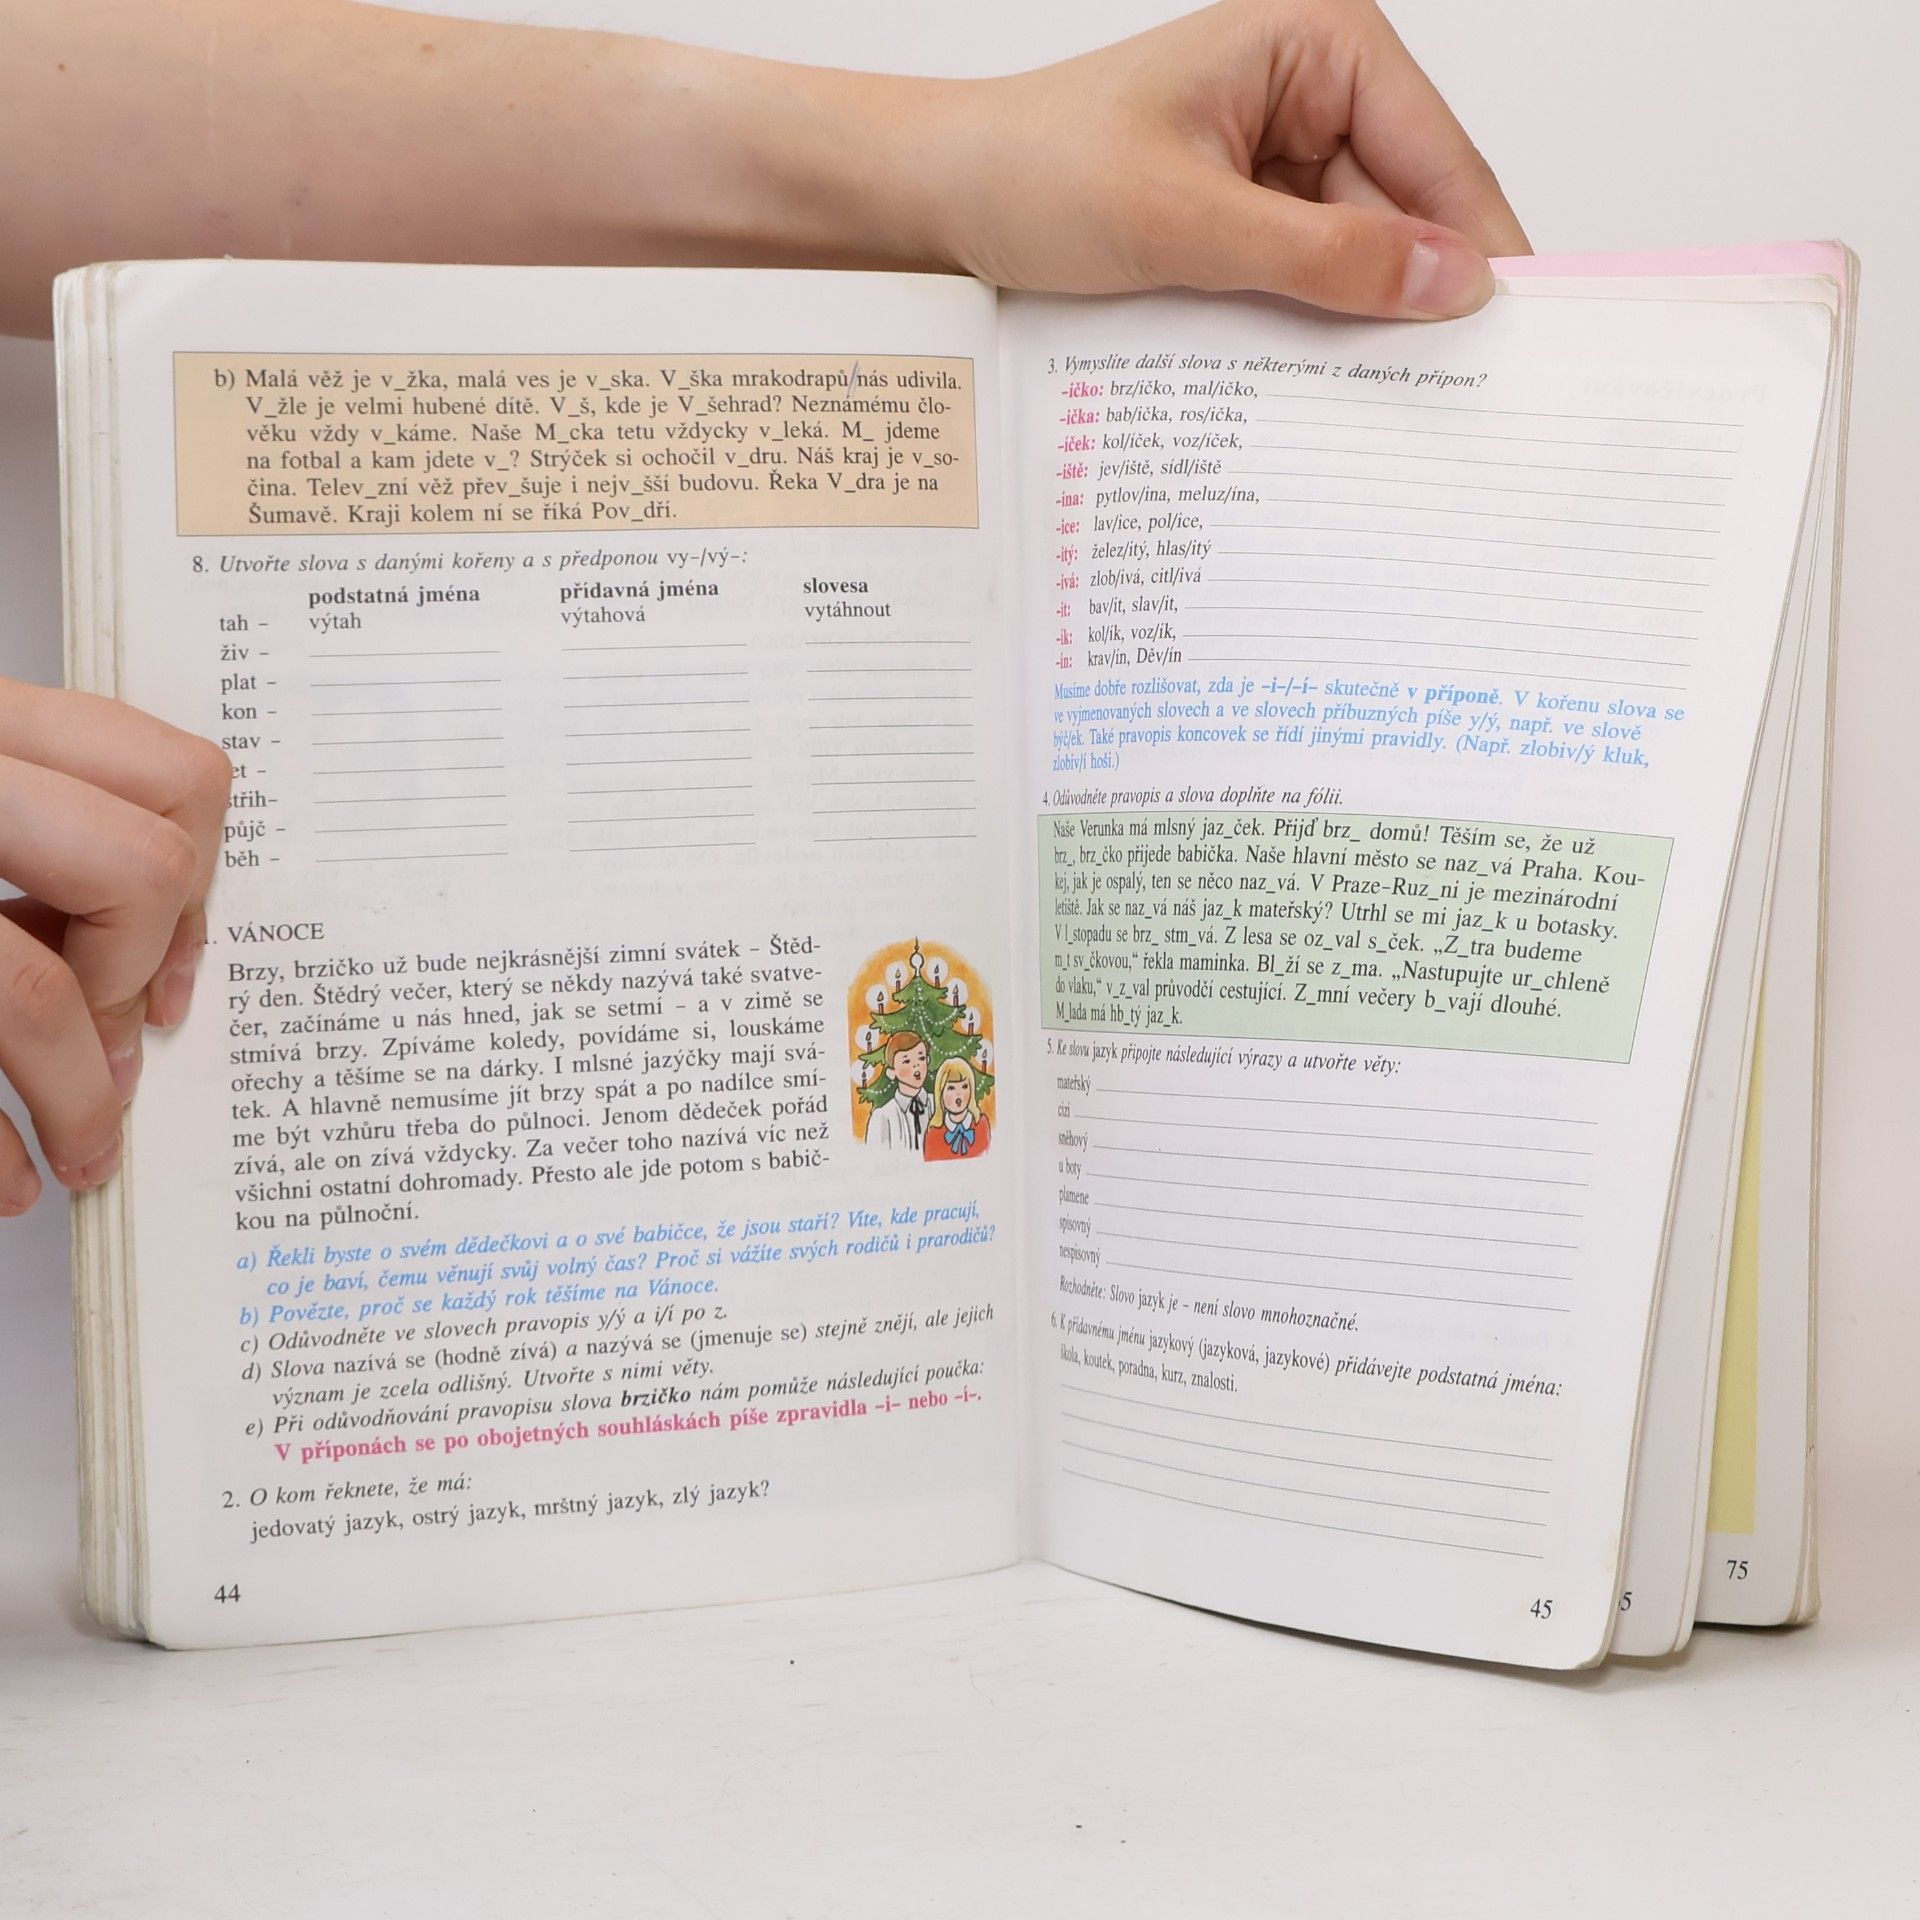 b) Malá věž je v_žka, malá ves je v_ska. V_ška mrakodrapů nás udivila.
V_žle je velmi hubené dítě. V_š, kde je V_šehrad? Neznámému člo-
věku vždy v_káme. Naše M_cka tetu vždycky v_leká. M_ jdeme
na fotbal a kam jdete v_? Strýček si ochočil v_dru. Náš kraj je v_so-
čina. Telev_zní věž přev_šuje i nejv_šší budovu. Řeka V_dra je na
Šumavě. Kraji kolem ní se říká Pov_dří.
8. Utvořte slova s danými kořeny a s předponou vy-/vý-:
podstatná jména přídavná jména slovesa
tah – výtah výtahová vytáhnout
živ –
plat –
kon –
stav –
et –
střih–
půjč –
běh –
1. VÁNOCE
Brzy, brzičko už bude nejkrásnější zimní svátek – Štěd-
rý den. Štědrý večer, který se někdy nazývá také svatve-
čer, začínáme u nás hned, jak se setmí – a v zimě se
stmívá brzy. Zpíváme koledy, povídáme si, louskáme
ořechy a těšíme se na dárky. I mlsné jazýčky mají svá-
tek. A hlavně nemusíme jít brzy spát a po nadílce smí-
me být vzhůru třeba do půlnoci. Jenom dědeček pořád
zívá, ale on zívá vždycky. Za večer toho nazívá víc než
všichni ostatní dohromady. Přesto ale jde potom s babič-
kou na půlnoční.
a) Řekli byste o svém dědečkovi a o své babičce, že jsou staří? Víte, kde pracují,
co je baví, čemu věnují svůj volný čas? Proč si vážíte svých rodičů i prarodičů?
b) Povězte, proč se každý rok těšíme na Vánoce.
c) Odůvodněte ve slovech pravopis y/ý a i/í po z.
d) Slova nazívá se (hodně zívá) a nazývá se (jmenuje se) stejně znějí, ale jejich
význam je zcela odlišný. Utvořte s nimi věty.
e) Při odůvodňování pravopisu slova brzičko nám pomůže následující poučka:
V příponách se po obojetných souhláskách píše zpravidla –i– nebo –í–.
2. O kom řeknete, že má:
jedovatý jazyk, ostrý jazyk, mrštný jazyk, zlý jazyk?
44
3. Vymyslíte další slova s některými z daných přípon?
–ičko: brz/ičko, mal/ičko,
–ička: bab/ička, ros/ička,
–íček: kol/íček, voz/íček,
–iště: jev/iště, sídl/iště
–ina: pytlov/ina, meluz/ína,
–ice: lav/ice, pol/ice,
–itý: želez/itý, hlas/itý
–ivá: zlob/ivá, citl/ivá
–it: bav/it, slav/it,
–ík: kol/ík, voz/ík,
–ín: krav/ín, Děv/ín
Musíme dobře rozlišovat, zda je –i–/–í– skutečně v příponě. V kořenu slova se
ve vyjmenovaných slovech a ve slovech příbuzných píše y/ý, např. ve slově
býč/ek. Také pravopis koncovek se řídí jinými pravidly. (Např. zlobiv/ý kluk,
zlobiv/í hoši.)
4. Odůvodněte pravopis a slova doplňte na fólii.
Naše Verunka má mlsný jaz_ček. Přijď brz_ domů! Těším se, že už
brz_, brz_čko přijede babička. Naše hlavní město se naz_vá Praha. Kou-
kej, jak je ospalý, ten se něco naz_vá. V Praze–Ruz_ni je mezinárodní
letiště. Jak se naz_vá náš jaz_k mateřský? Utrhl se mi jaz_k u botasky.
V l_stopadu se brz_ stm_vá. Z lesa se oz_val s_ček. „Z_tra budeme
m_t sv_čkovou,“ řekla maminka. Bl_ží se z_ma. „Nastupujte ur_chleně
do vlaku,“ v_z_val průvodčí cestující. Z_mní večery b_vají dlouhé.
M_lada má hb_tý jaz_k.
5. Ke slovu jazyk připojte následující výrazy a utvořte věty:
mateřský
cizí
sněhový
u boty
plamene
spisovný
nespisovný
Rozhodněte: Slovo jazyk je – není slovo mnohoznačné.
6. K přídavnému jménu jazykový (jazyková, jazykové) přidávejte podstatná jména:
škola, koutek, poradna, kurz, znalosti.
45
5
75